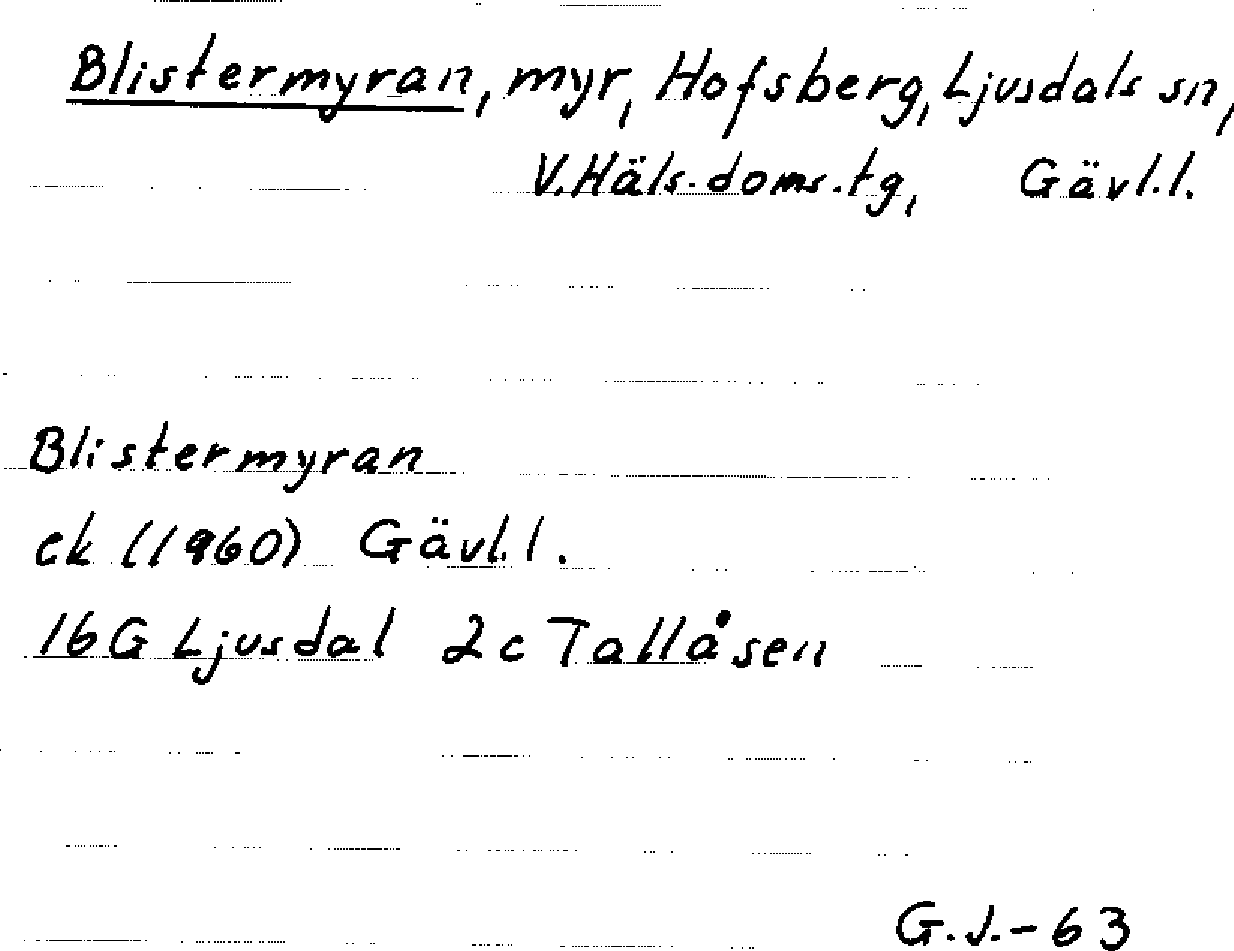 Blistermyran, myr, Hofsberg, Ljusdals sn,
V.Häls.doms.tg, Gävl.l.
Blistermyran
ek (1960) Gävl.l.
16G Ljusdal 2c Tallåsen
G.J.-63